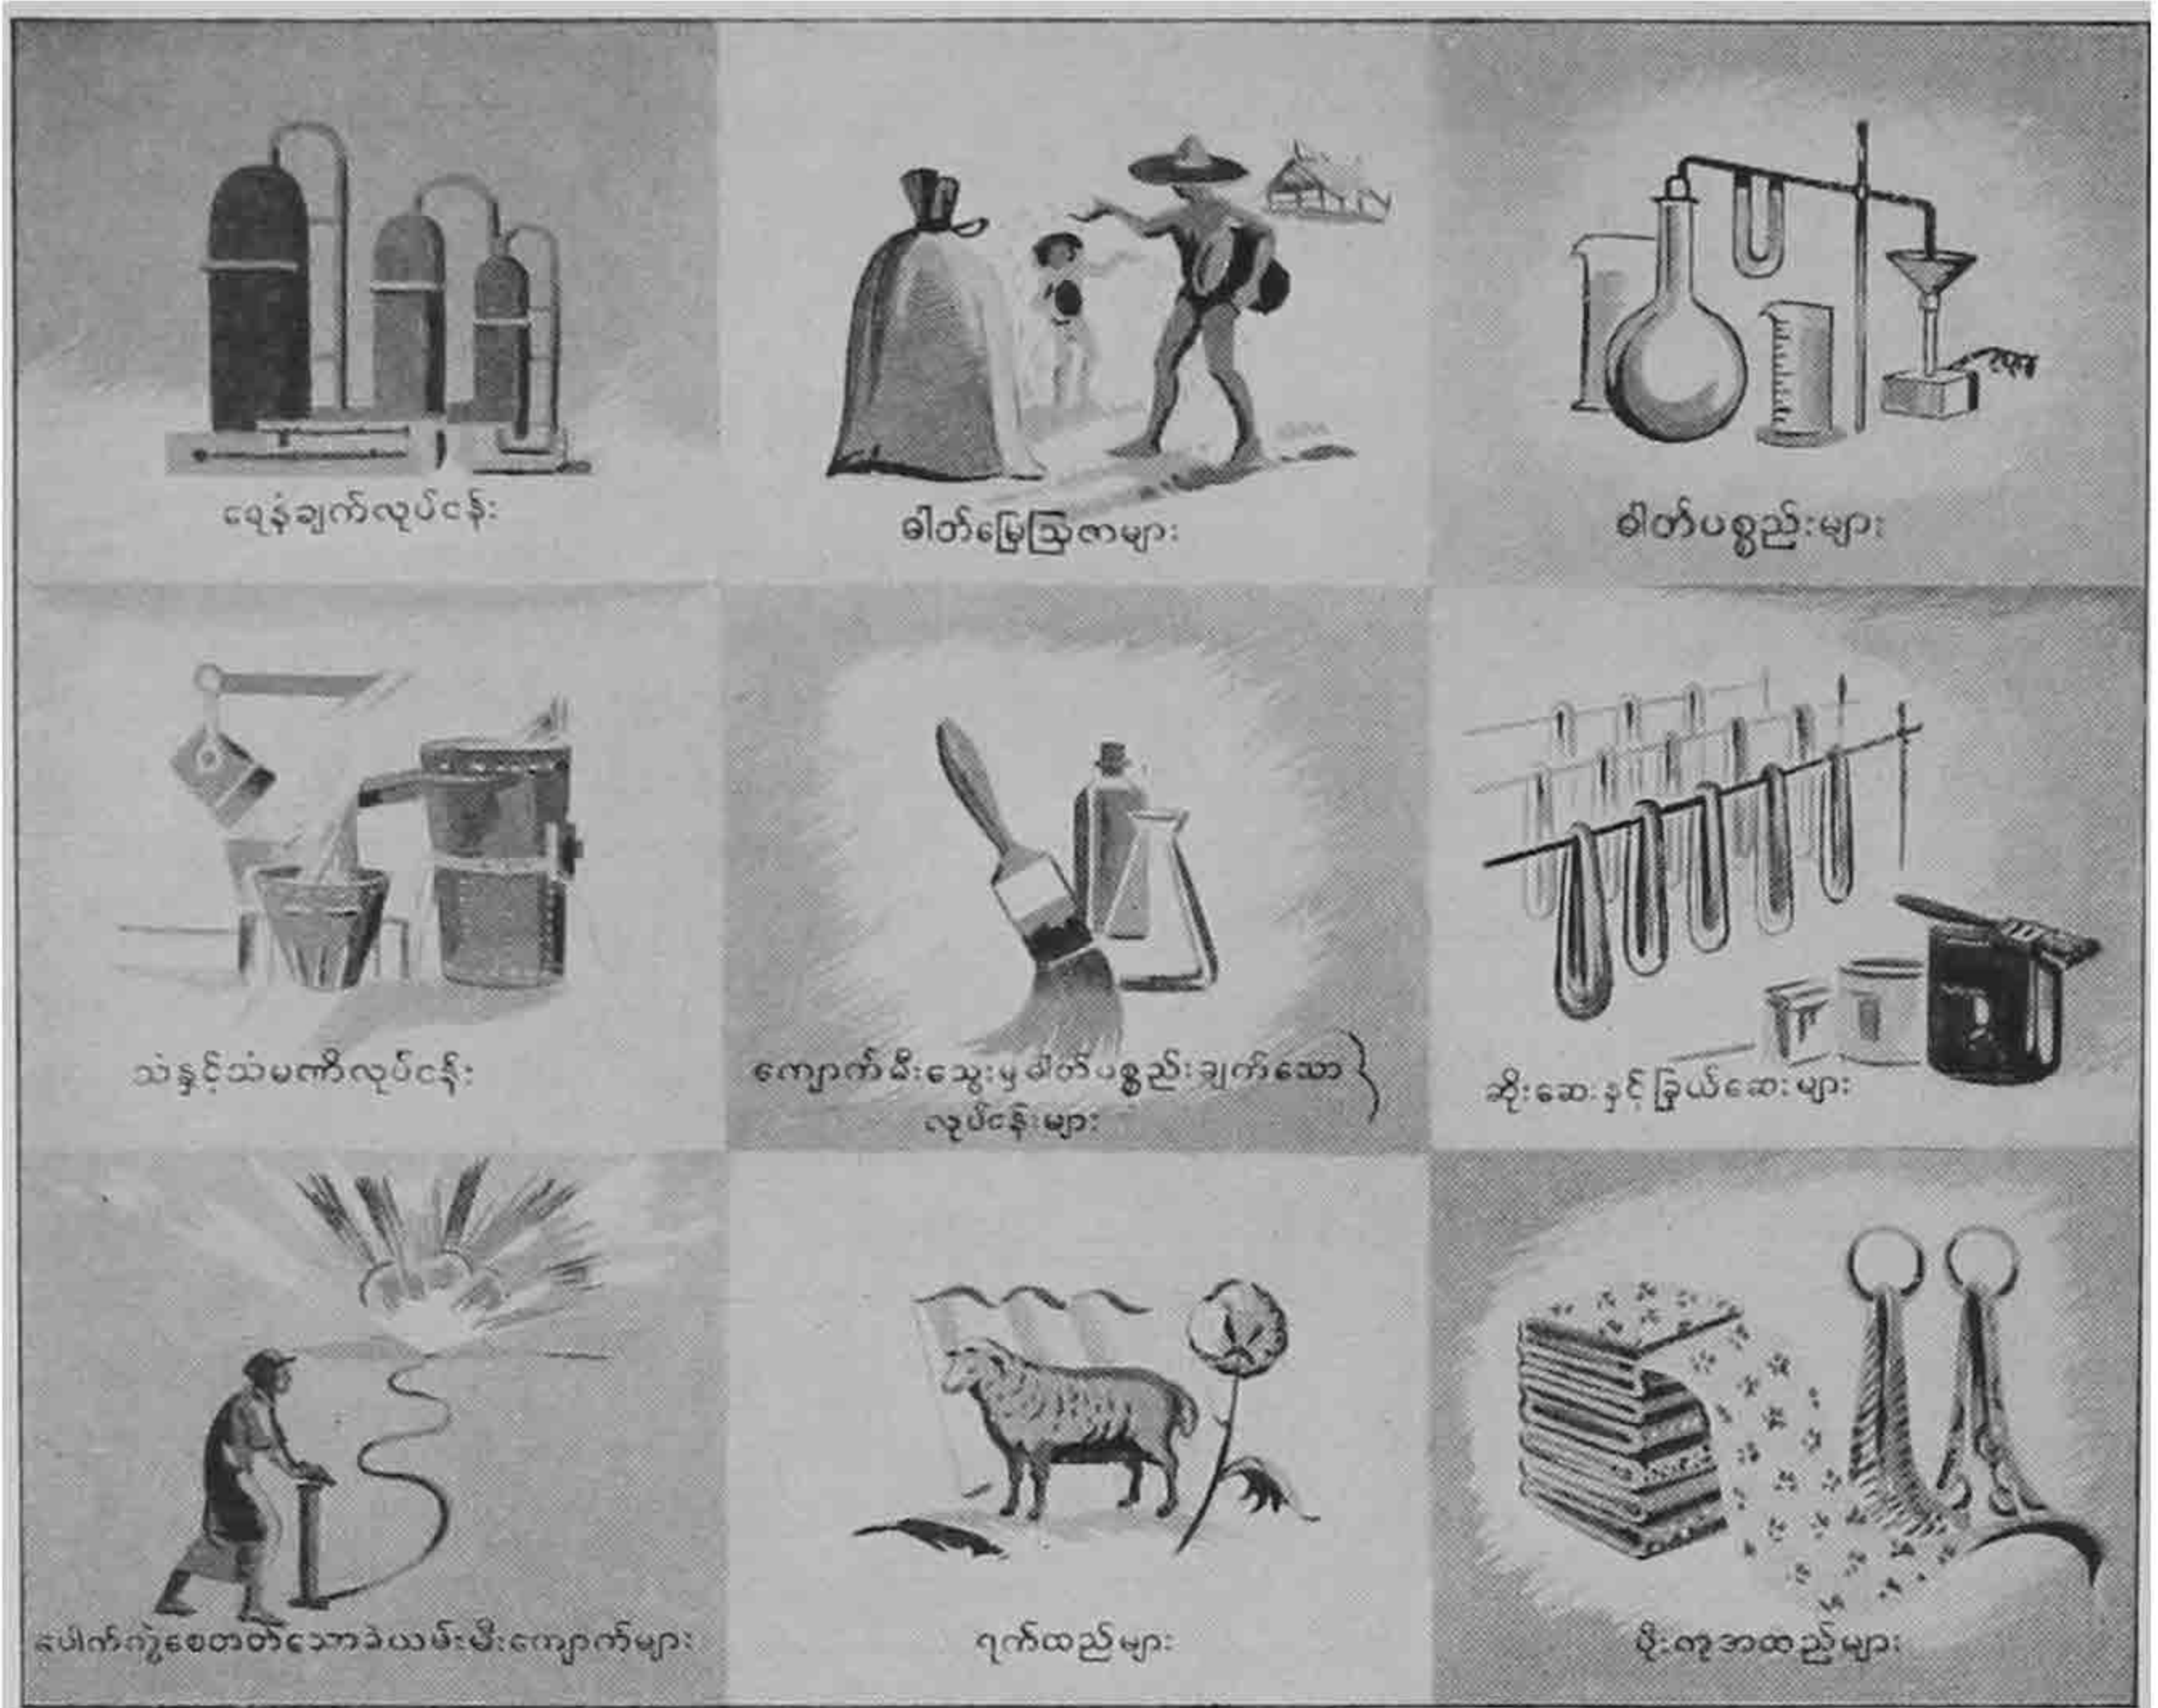 ရေနံချက်လုပ်ငန်း
ဓါတ်မြေဩဇာများ
ဓါတ်ပစ္စည်းများ
သံနှင့်သံမဏိလုပ်ငန်း
ကျောက်မီးသွေးမှဓါတ်ပစ္စည်းချက်သော
လုပ်ငန်းများ
ဆိုးဆေးနှင့်ခြယ်ဆေးများ
ပေါက်ကွဲစေတတ်သောခဲယမ်းမီးကျောက်များ
ရက်ထည်များ
ပိုးတုအထည်များ